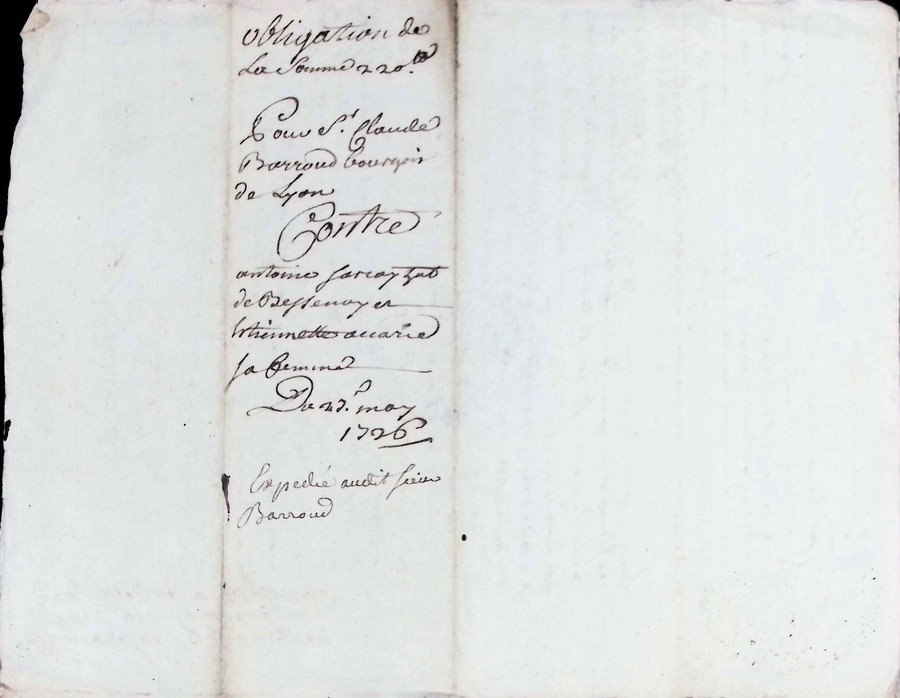 obligation de
La Somme 220.#
Pour Sr. Claude
Barroud bourgois
de Lyon
Contre
antoine
de Bessenay et
Estiennette
sa femme
Du 27e. may
1726
Expedié audit sieur
Barroud